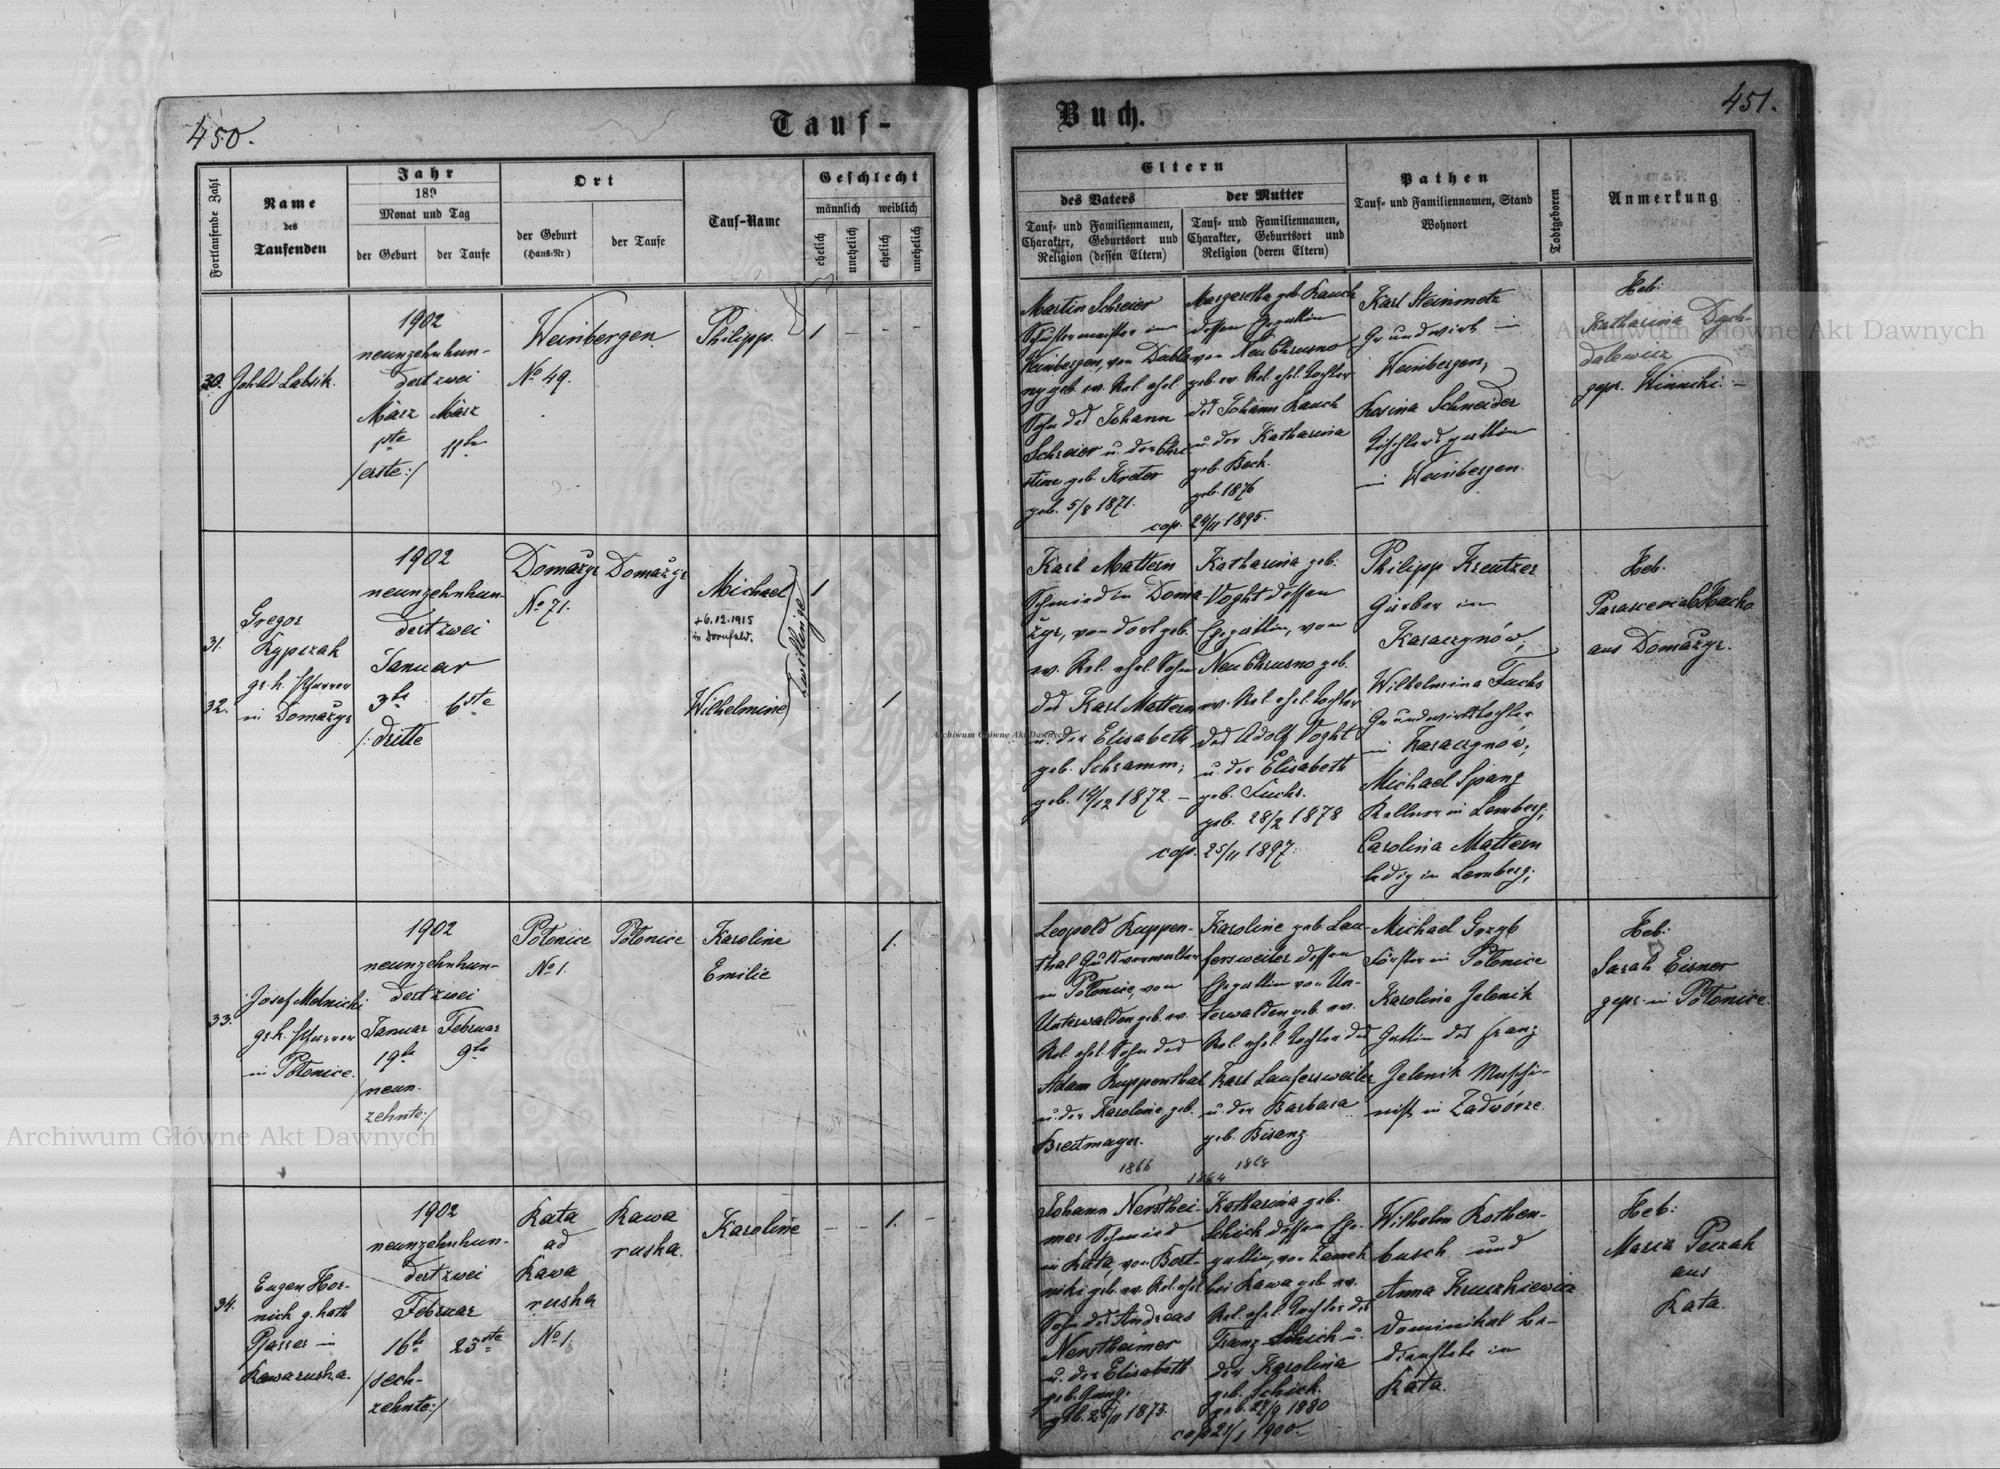 450.
Tauf-
Fortlaufende Zahl
Name
des
Taufenden
Jahr
189
Monat und Tag
der Geburt
der Taufe
Ort
der Geburt
(Haus-Nr)
der Taufe
Tauf-Name
Geschlecht
männlich
weiblich
ehelich
unehelich
ehelich
unehelich
30.
1902
neunzehnhun-
dert zwei
März März
1te 11te
/erste:/
Weinbergen
No 49.
Philipp.
1 - - -
31.
32.
Gregor
gr. k. Pfarrer
in Domažyr
1902
neunzehnhun-
dert zwei
Januar
3te 6ste
/: dritte
Domažyr Domažyr
No 71.
Michael
+6.12.1915
in Dornfeld.
Wilhelmine
Zwillinge
1
1
33.
Josef Melnicki
gr. k. Pfarrer
in Połonice.
1902
neunzehnhun-
dert zwei
Januar Februar
19te 9te
/neun-
zehnte:/
Połonice Połonice
No 1.
Karoline
Emilie
1.
34.
Eugen Hor-
nich g. kath
Pfarrer in
Rawaruska.
1902
neunzehnhun-
dert zwei
Februar
16te 23ste
/sech-
zehnte:/
Kata
ad
Rawa
ruska
No 1.
Rawa
ruska.
Karoline
- - 1. -
Buch.
451.
Eltern
des Vaters
Tauf- und Familiennamen,
Charakter, Geburtsort und
Religion (dessen Eltern)
der Mutter
Tauf- und Familiennamen,
Charakter, Geburtsort und
Religion (deren Eltern)
Pathen
Tauf- und Familiennamen, Stand
Wohnort
Todtgeboren
Anmerkung
Martin Schreier
Schustermeister in
Weinbergen, von Dubla-
ny geb. ev. Rel. ehel.
Sohn des Johann
Schreier u. der Chri
stine geb. Kreter
geb. 5/8 1871.
Margaretha geb. Rauch
dessen Ehegattin
von Neu Chrusno
geb. ev. Rel. ehel. Tochter
des Johann Rauch
u. der Katharina
geb. Bech.
geb. 1876
cop. 24/11 1895.
Karl Steinmetz
Grundwirt in
Weinbergen;
Rosina Schneider
Tischlersgattin
in Weinbergen.
Heb:
Katharina Dych-
dalewicz
gepr. Winniki. -
Karl Mattern
Schmied in Doma-
žyr, von dort geb.
ev. Rel. ehel. Sohn
des Karl Mattern
u. der Elisabeth
geb. Schramm;
geb. 14/12 1872. -
Katharina geb.
Voght dessen
Ehegattin, von
Neu Chrusno geb.
ev. Rel. ehel. Tochter
des Adolf Voght
u. der Elisabeth
geb. Fuchs.
geb. 28/2 1878
cop. 25/11 1897.
Philipp Kreutzer
in
Karaczynów;
Wilhelmina Fuchs
Grundwirtstochter
in Karaczynów;
Michael Spang
Kellner in Lemberg;
Carolina Mattern
ledig in Lemberg;
Heb.
aus Domažyr.
Leopold Ruppen-
thal Gutsverwalter
in Połonice, von
Unterwalden geb. ev.
Rel. ehel. Sohn des
Adam Ruppenthal
u. der Karoline geb.
Breitmayer.
1866
Karoline geb. Lau-
fersweiler dessen
Ehegattin von Un-
terwalden geb. ev.
Rel. ehel. Tochter des
Karl Laufersweiler
u. der Barbara
geb. Bisanz
1868
1864
Michael Grzyb
Förster in Połonice
Karoline Jelenik
Gattin des Franz
Jelenik Maschi-
nist in Zadwórze.
Heb:
Sarah Eisner
gepr. in Połonice.
Johann Nersthei-
mer Schmied
in Kata, von Bort-
niki geb. ev. Rel. ehel
Sohn des Andreas
Nerstheimer
u. der Elisabeth
geb. Gung.
geb. 25/11 1873.
Katharina geb.
Schick dessen Ehe-
gattin, von Zamek
bei Rawa geb. ev.
Rel. ehel. Tochter des
Franz Schick u.
der Karolina
geb. Schick.
geb. 22/9 1880
cop 21/1 1900.-
Wilhelm Rothen-
busch und
Anna Kruszkiewicz
Dominikal Be-
dienstete in
Kata.
Heb:
Maria Peczak
aus
Kata.
Archiwum Główne Akt Dawnych
Archiwum Główne Akt Dawnych
Archiwum Główne Akt Dawnych